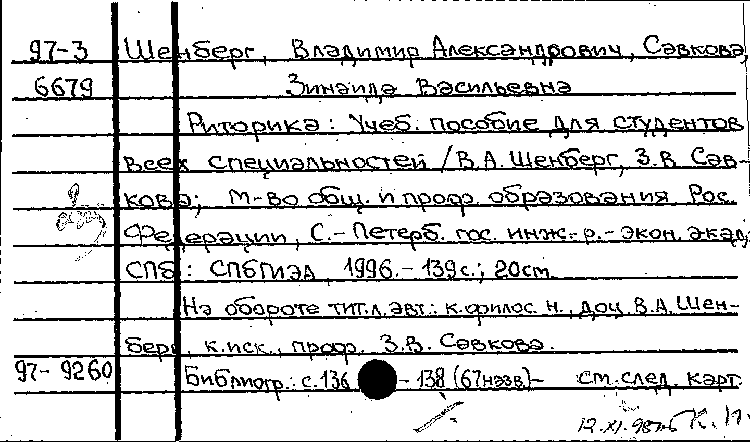 97-3 Шенберг, Владимир Александрович, Савкова,
6679 Зинаида Васильевна
Риторика: Учеб. пособие для студентов
всех специальностей / В.А. Шенберг, З.В. Сав-
кова; М-во общ. и проф. образования Рос.
Федерации, С.-Петерб. гос. инж.-
экон. акад.
СПб: СПбГИЭА, 1996.- 139с.; 20см.
На обороте тит.л. авт.: к.филос.н., доц. В.А. Шен-
берг, к.иск., проф. З.В. Савкова.
97-9260 Библиогр.: с.136 - 138 (67назв)- см.след. карт.
12.XI.98
К.П.